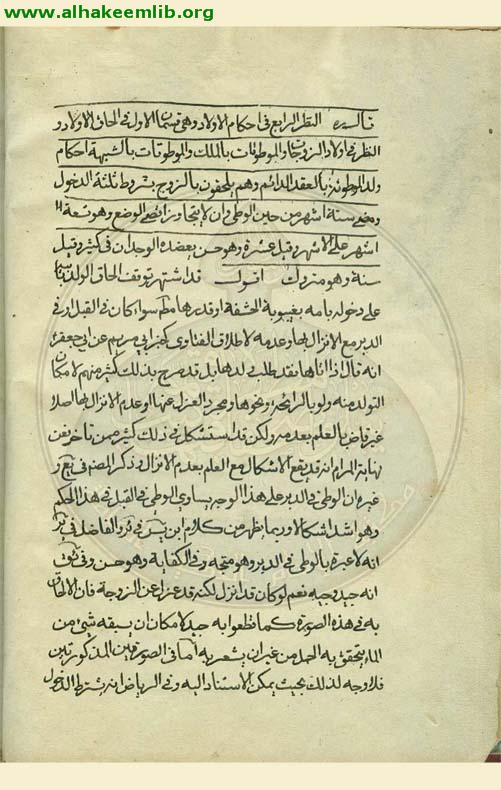 www.alhakeemlib.org
النظر الرابع في احكام الاولاد وهي قسمان الاول في الحاق الاولاد و
النظر في اولاد الزوجات والموطوئات بالملك والموطوئات بالشبهة احكام
ولد الموطوئة بالعقد الدائم وهم يلحقون بالزوج بشروط ثلثة الدخول
ومضي ستة اشهر من حين الوطي وان لا يتجاوز اقصى الوضع وهو تسعة
اشهر على الاشهر وقيل عشرة وهو حسن يعضده الوجدان في كثير وقيل
سنة وهو متروك اقول قد اشتهر توقف الحاق الولد
على دخوله بامه بغيبوبة الحشفة او قدرها سواء كان في القبل او في
الدبر مع الانزال بها وعدمه لاطلاق الفتاوى عن ابي جعفر
انه قال اذا اتاها فقد طلب ولدها بل قد صرح بذلك كثير منهم لامكان
التولد منه ولو بالرائحة ونحوها ومجرد العزل عنها او عدم الانزال بها اصلا
غير قاض بالعلم بعدمه ولكن قد استشكل في ذلك كثير ممن تاخر ففي
نهاية المرام انه قد يقع الاشكال مع العلم بعدم الانزال وذكر المصنف في
غيره ان الوطي في الدبر على هذا الوجه يساوي الوطي في القبل في هذا الحكم
وهو اشد اشكالا وربما يظهر من كلام ابن والفاضل في
انه لا عبرة بالوطي في الدبر وهو متجه وفي الكفاية وهو حسن وفي
انه جيد وجيه نعم لو كان قد انزل لكنه قد عزل عن الزوجة فان الالحاق
به في هذه الصورة كما قطعوا به جيد لامكان ان يسبقه شيء من
الماء يتحقق به الحمل من غير ان يشعر به اما في الصورتين المذكورتين
فلا وجه لذلك بحيث يمكن الاستناد اليه وفي الرياض انه يشترط الدخول